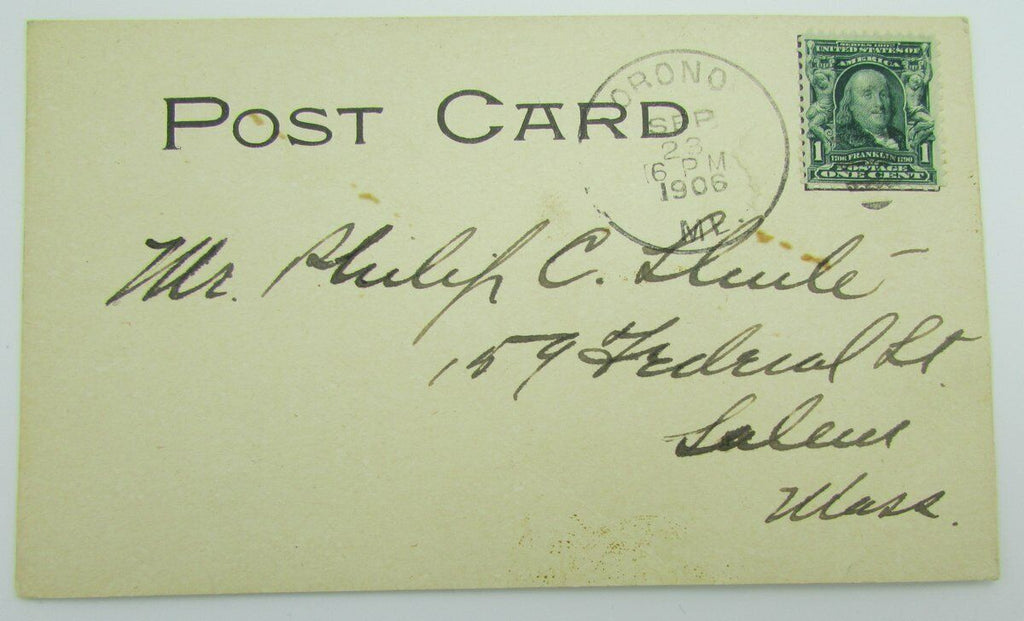 POST CARD
ORONO
SEP
23
6 PM
1906
ME.
SERIES 1902
UNITED STATES OF
AMERICA
1 1706 FRANKLIN 1790 1
POSTAGE
ONE CENT
Mr. Philip C.
159 Federal St
Salem
Mass.